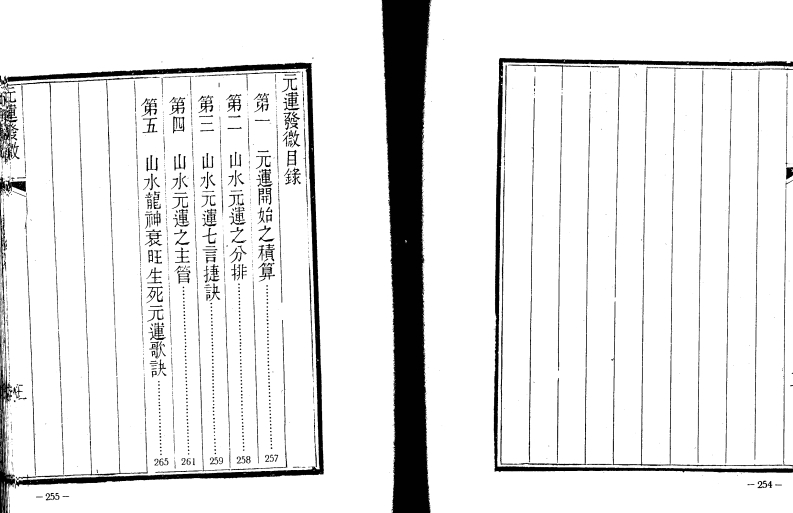 元運發微目錄
第一　元運開始之積算……257
第二　山水元運之分排……258
第三　山水元運七言捷訣……259
第四　山水元運之主管……261
第五　山水龍神衰旺生死元運歌訣……265
元運發微
－255－
－254－